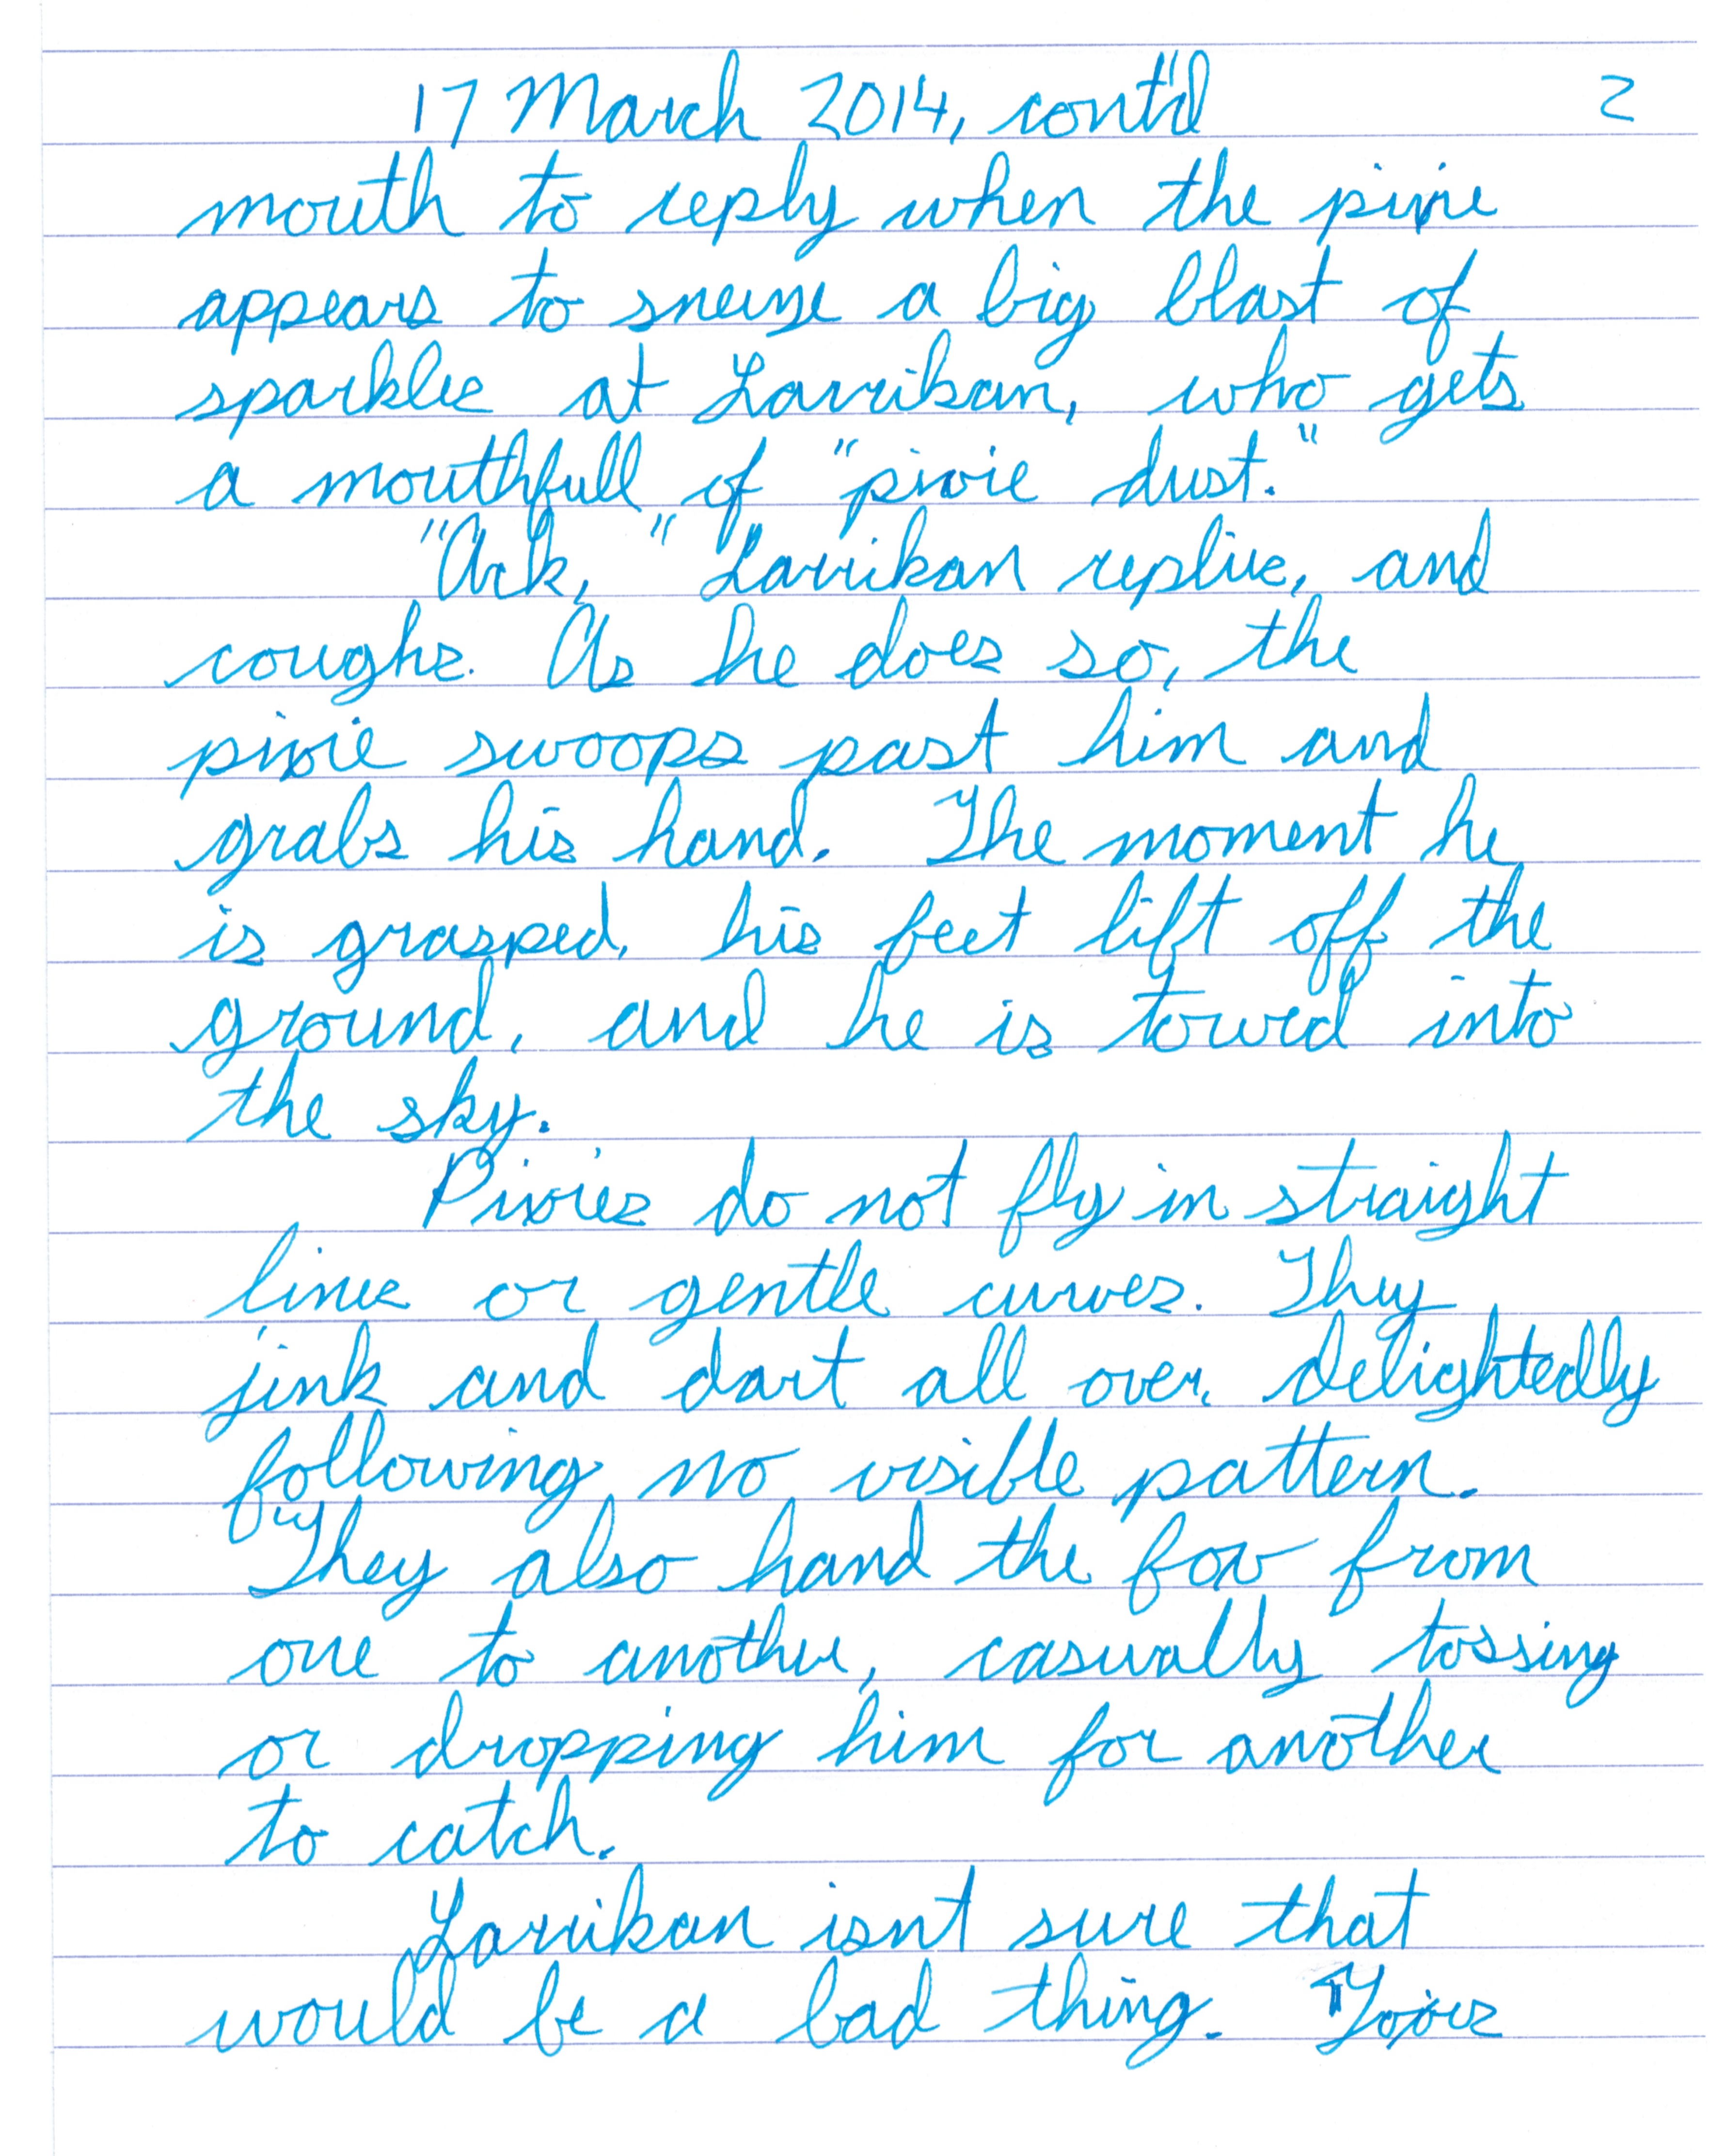 17 March 2014, cont'd 2
mouth to reply when the pixie
appears to sneeze a big blast of
sparkles at Larrikan, who gets
a mouthfull of "pixie dust."
"Ack," Larrikan replies, and
coughs. As he does so, the
pixie swoops past him and
grabs his hand. The moment he
is grasped, his feet lift off the
ground, and he is towed into
the sky.
Pixies do not fly in straight
lines or gentle curves. They
jink and dart all over, delightedly
following no visible pattern.
They also hand the fox from
one to another, casually tossing
or dropping him for another
to catch.
Larrikan isn't sure that
would be a bad thing. Foxes